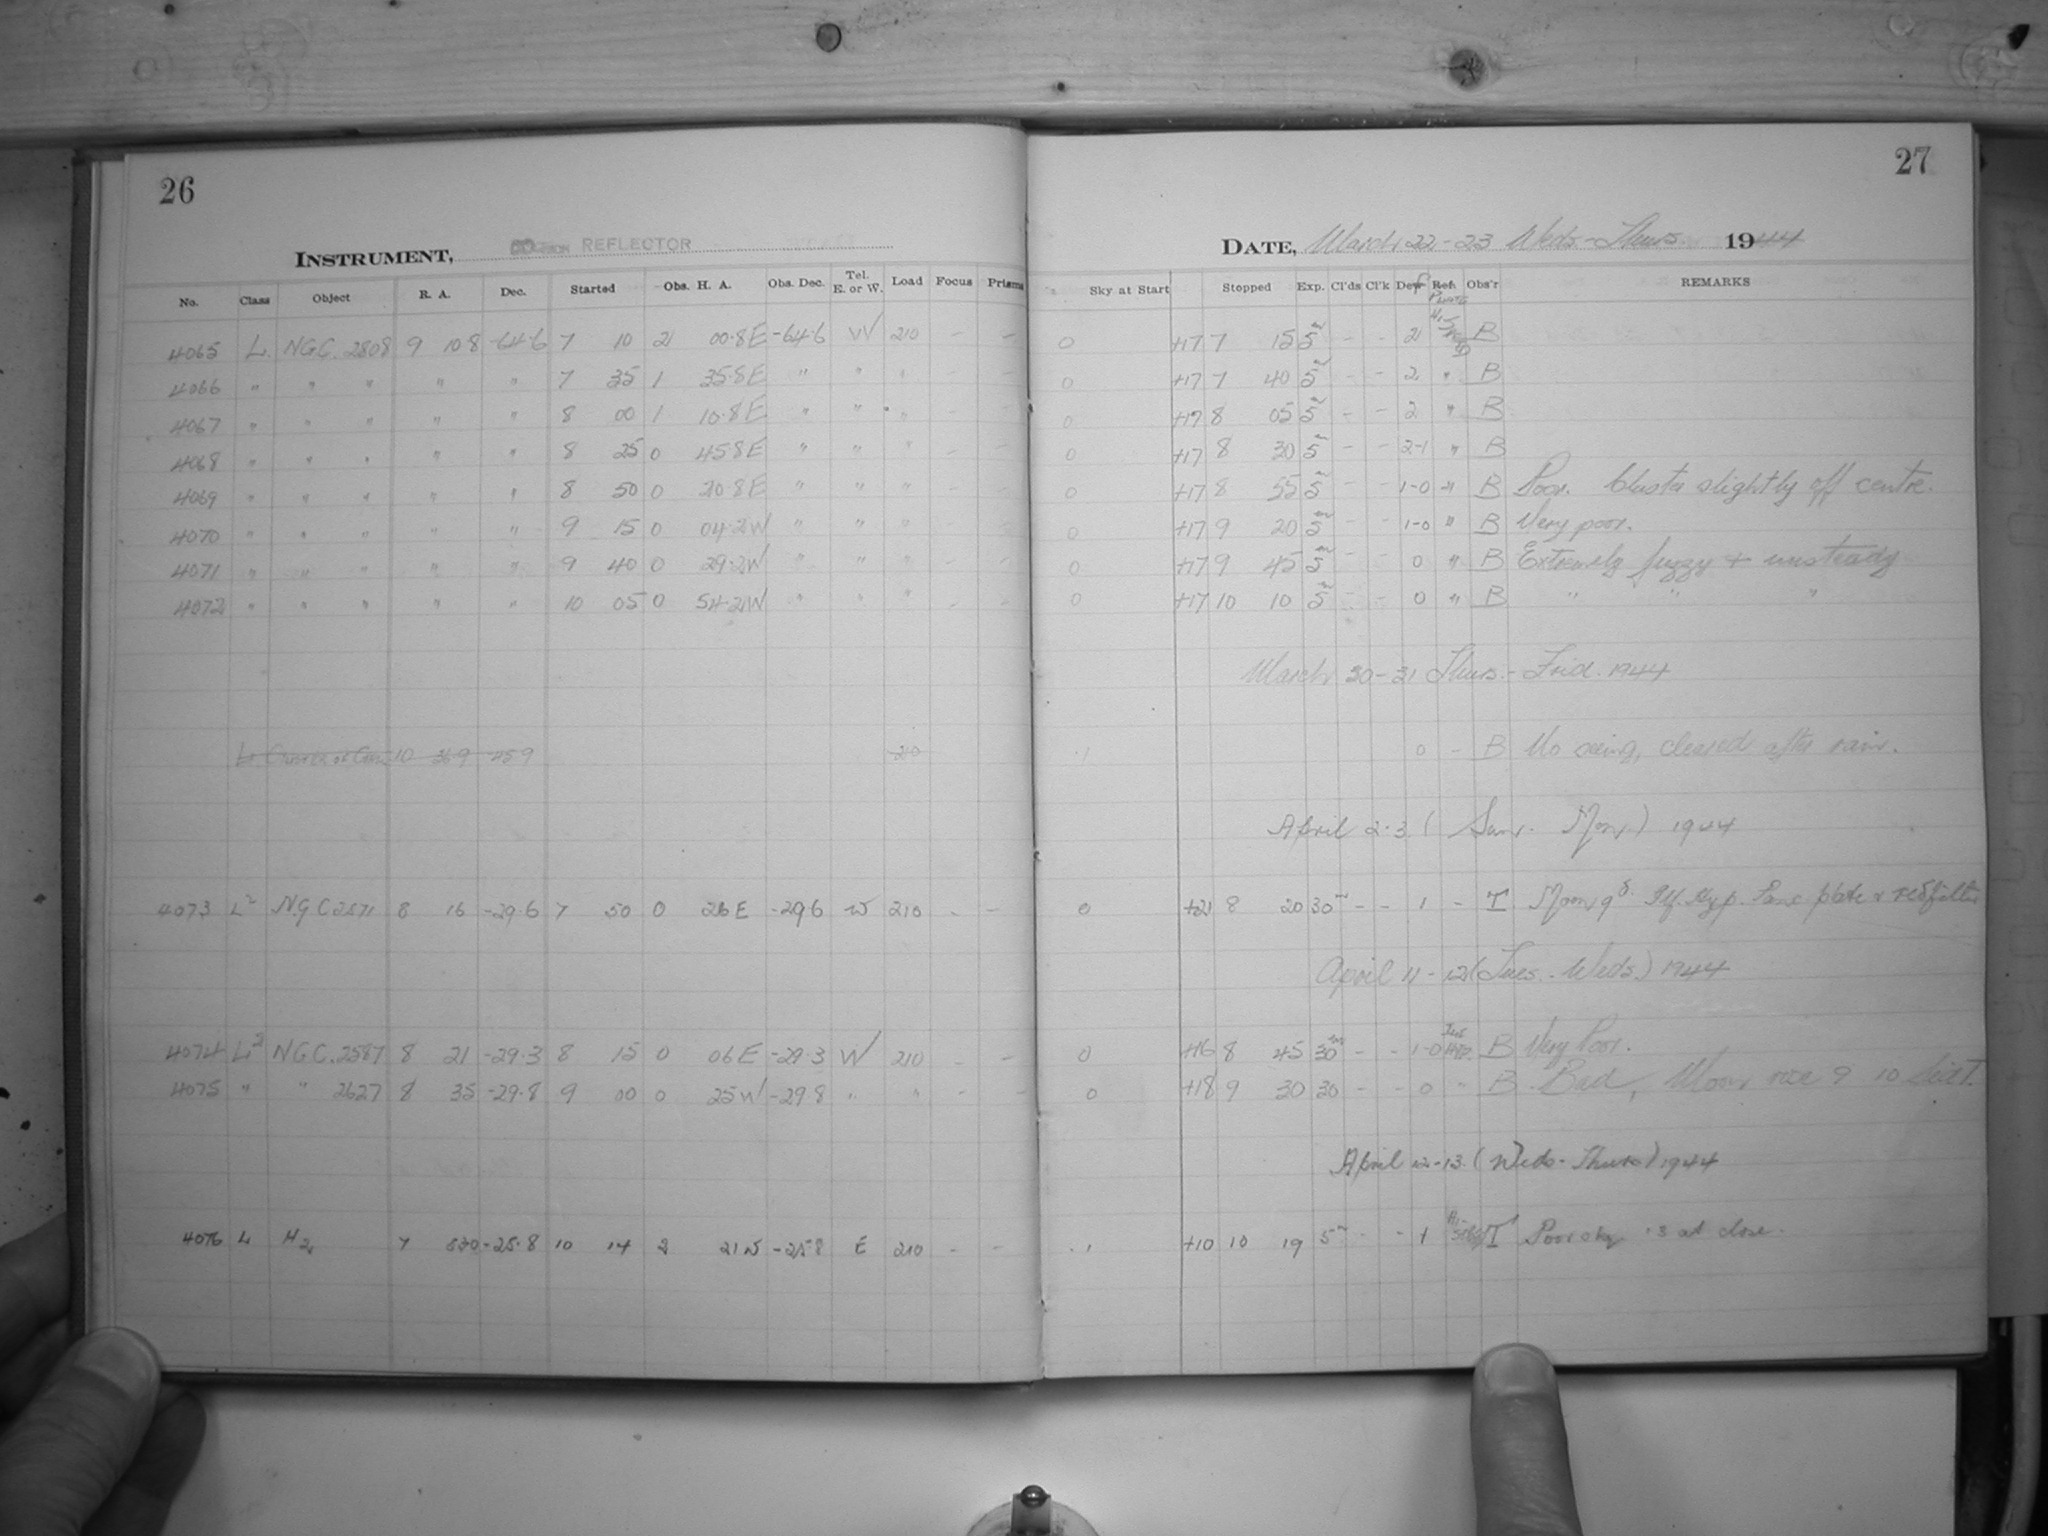 26
INSTRUMENT, REFLECTOR
No. Class Object R. A. Dec. Started Obs. H. A. Obs. Dec. Tel. E. or W. Load Focus Prisms
4065 L NGC. 2808 9 10.8 -64.6 7 10 2 00.8E -64.6 W 210 - -
4066 " " " " " 7 35 1 35.8E " " " - -
4067 " " " " " 8 00 1 10.8E " " " - -
4068 " " " " " 8 25 0 45.8E " " " - -
4069 " " " " " 8 50 0 20.8E " " " - -
4070 " " " " " 9 15 0 04.2W " " " - -
4071 " " " " " 9 40 0 29.2W " " " - -
4072 " " " " " 10 05 0 54.2W " " " - -
L 10 36.9 -45.9 210
4073 L2 NGC 2571 8 16 -29.6 7 50 0 26E -29.6 W 210 - -
4074 L2 NGC. 2587 8 21 -29.3 8 15 0 06E -29.3 W 210 - -
4075 " " 2627 8 35 -29.8 9 00 0 25W -29.8 " " - -
4076 L H2 7 -25.8 10 14 2 21W -25.8 E 210 - -
27
DATE, March 22-23 Weds-Thurs. 1944
Sky at Start Stopped Exp. Cl'ds Cl'k Def Ref. Obs'r REMARKS
0 +17 7 15 5m - - 2 B
0 +17 7 40 5m - - 2 " B
0 +17 8 05 5m - - 2 " B
0 +17 8 30 5m - - 2-1 " B
0 +17 8 55 5m - - 1-0 " B Poor. Cluster slightly off centre.
0 +17 9 20 5m - - 1-0 " B Very poor.
0 +17 9 45 5m - - 0 " B Extremely fuzzy + unsteady
0 +17 10 10 5m - - 0 " B " " "
March 30-31 Thurs.-Frid. 1944
.1 0 - B No seeing, cleared after rain.
April 2-3 (Sun. Mon.) 1944
0 +21 8 20 30m - - 1 - T Moon 9d. Ilf. Hyp. Panc plate & red filter
April 11-12 (Tues.-Weds.) 1944
0 +16 8 45 30m - - 1-0 B Very Poor.
0 +18 9 30 30 - - 0 " B Bad, Moon rise 9 10
April 12-13. (Weds-Thurs) 1944
.1 +10 10 19 5m - - 1 T Poor sky .3 at close.